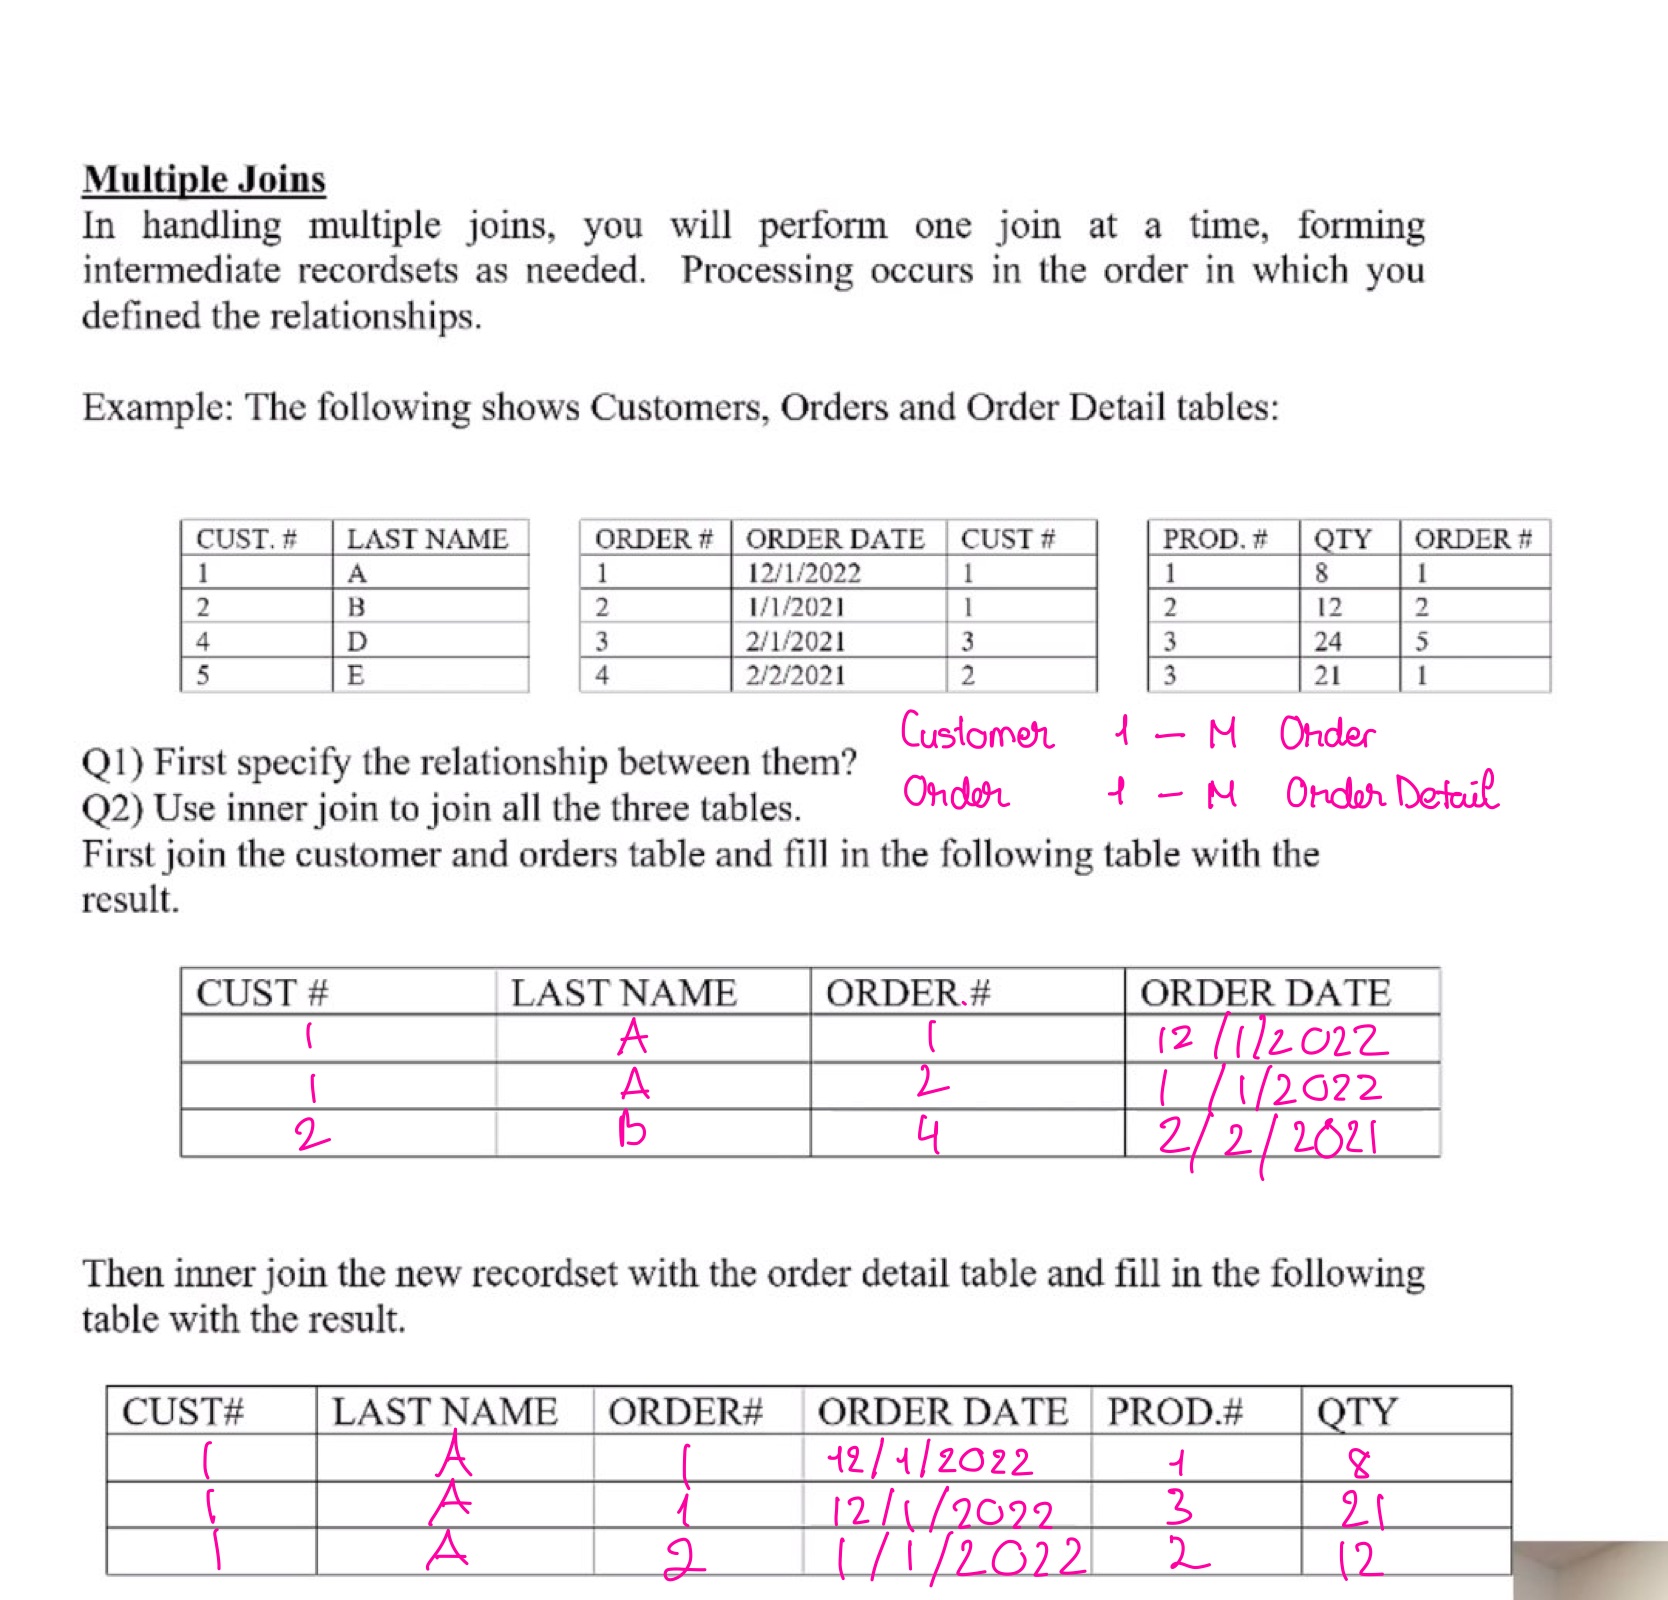 Multiple Joins
In handling multiple joins, you will perform one join at a time, forming
intermediate recordsets as needed. Processing occurs in the order in which you
defined the relationships.
Example: The following shows Customers, Orders and Order Detail tables:
CUST. # LAST NAME
1 A
2 B
4 D
5 E
ORDER # ORDER DATE CUST #
1 12/1/2022 1
2 1/1/2021 1
3 2/1/2021 3
4 2/2/2021 2
PROD. # QTY ORDER #
1 8 1
2 12 2
3 24 5
3 21 1
Customer 1 - M Order
Q1) First specify the relationship between them?
Order 1 - M Order Detail
Q2) Use inner join to join all the three tables.
First join the customer and orders table and fill in the following table with the
result.
CUST # LAST NAME ORDER.# ORDER DATE
1 A 1 12/1/2022
1 A 2 1/1/2022
2 B 4 2/2/2021
Then inner join the new recordset with the order detail table and fill in the following
table with the result.
CUST# LAST NAME ORDER# ORDER DATE PROD.# QTY
1 A 1 12/1/2022 1 8
1 A 1 12/1/2022 3 21
1 A 2 1/1/2022 2 12